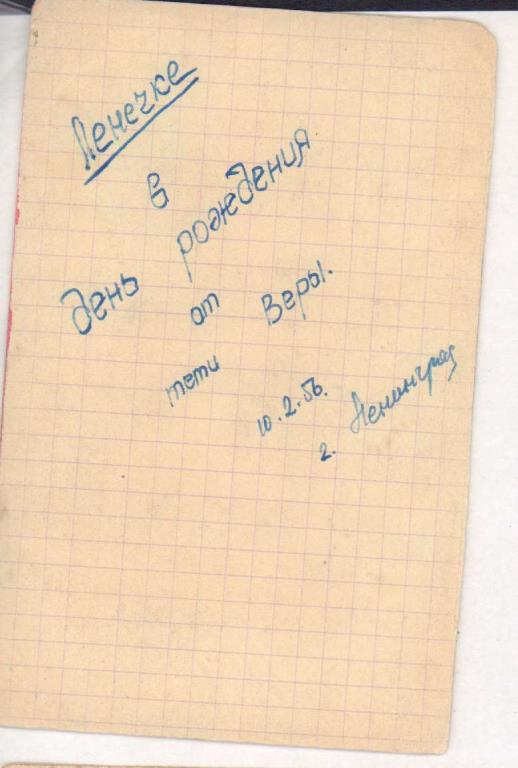 Ленечке
в
день рождения
от
тети Веры.
10.2.56.
г. Ленинград